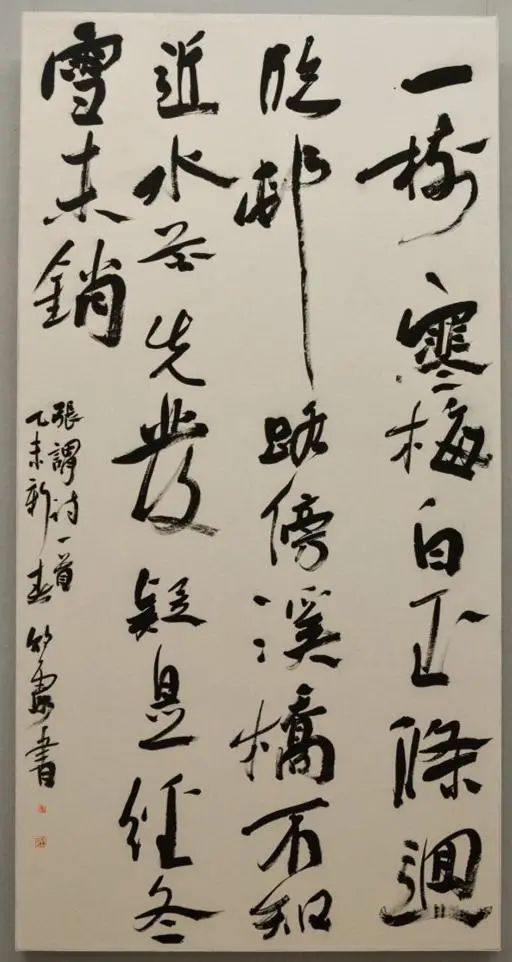 一樹寒梅白玉條迥
臨邨路傍溪橋不知
近水花先發疑是經冬
雪未銷
張謂詩一首
乙未新春
書